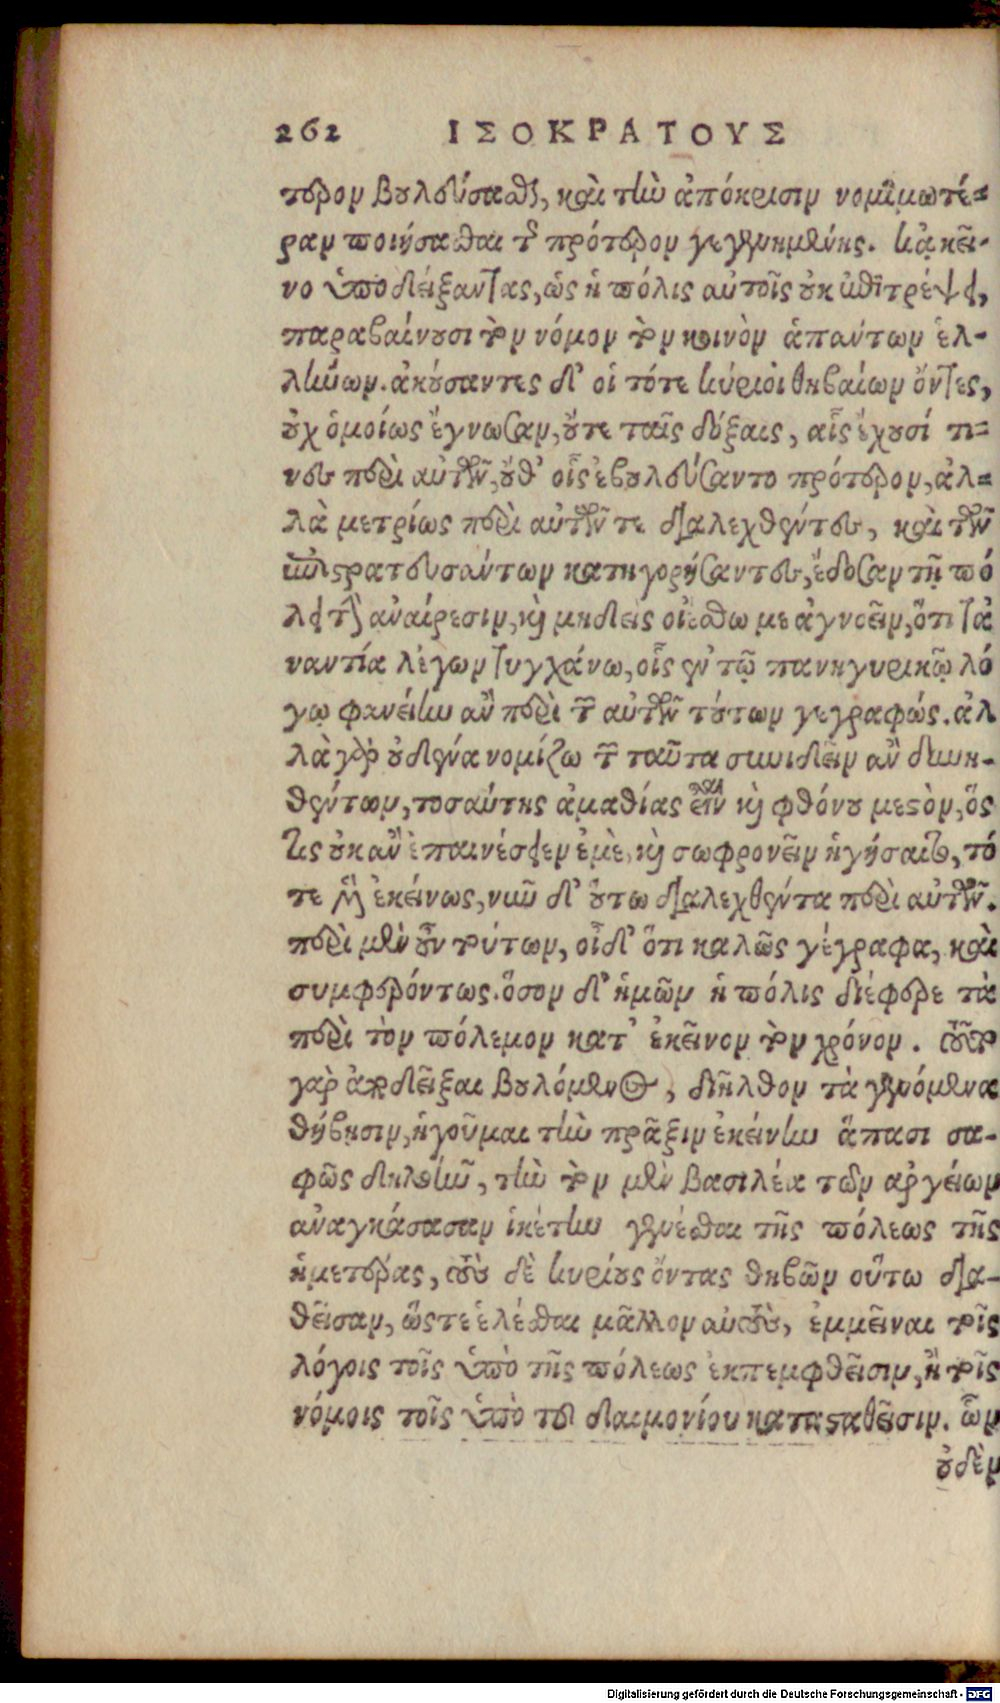 262 ΙΣΟΚΡΑΤΟΥΣ
τερον βουλεύσασθαι, καὶ τὴν ἀπόκρισιν νομιμωτέ-
ραν ποιήσασθαι τῆς πρότερον γεγενημένης. κἀκεῖ-
νο ὑποδείξαντας, ὡς ἡ πόλις αὐτοῖς οὐκ ἐπιτρέψει,
παραβαίνουσι τὸν νόμον τὸν κοινὸν ἁπάντων ἑλ-
λήνων. ἀκούσαντες δ' οἱ τότε κύριοι θηβαίων ὄντες,
οὐχ ὁμοίως ἔγνωσαν, οὔτε ταῖς δόξαις, αἷς ἔχουσί τι-
νες περὶ αὐτῶν, οὔθ' οἷς ἐβουλεύσαντο πρότερον, ἀλ-
λὰ μετρίως περὶ αὑτῶν τε διαλεχθέντες, καὶ τῶν
ἐπιστρατευσάντων κατηγορήσαντες, ἔδοσαν τῇ πό
λει τὴν ἀναίρεσιν, καὶ μηδεὶς οἰέσθω με ἀγνοεῖν, ὅτι τἀ
ναντία λέγων τυγχάνω, οἷς ἐν τῷ πανηγυρικῷ λό
γῳ φανείην ἂν περὶ τῶν αὐτῶν τούτων γεγραφώς. ἀλ
λὰ γὰρ οὐδένα νομίζω τῶν ταῦτα συνιδεῖν ἂν δυνη-
θέντων, τοσαύτης ἀμαθίας εἶναι καὶ φθόνου μεστὸν, ὅς
τις οὐκ ἂν ἐπαινέσειεν ἐμὲ, καὶ σωφρονεῖν ἡγήσαιτο, τό
τε μὲν ἐκείνως, νῦν δ' οὕτω διαλεχθέντα περὶ αὐτῶν.
περὶ μὲν οὖν τούτων, οἶδ' ὅτι καλῶς γέγραφα, καὶ
συμφερόντως. ὅσον δ' ἡμῶν ἡ πόλις διέφερε τὰ
περὶ τὸν πόλεμον κατ' ἐκεῖνον τὸν χρόνον. τοῦτο
γὰρ ἀποδεῖξαι βουλόμενος, διῆλθον τὰ γενόμενα
θήβησιν, ἡγοῦμαι τὴν πρᾶξιν ἐκείνην ἅπασι σα-
φῶς δηλοῦν, τὴν τὸν μὲν βασιλέα τῶν ἀργείων
ἀναγκάσασαν ἱκέτην γενέσθαι τῆς πόλεως τῆς
ἡμετέρας, τοὺς δὲ κυρίους ὄντας θηβῶν οὕτω δια-
θεῖσαν, ὥστε ἑλέσθαι μᾶλλον αὐτοὺς, ἐμμεῖναι τοῖς
λόγοις τοῖς ὑπὸ τῆς πόλεως ἐκπεμφθεῖσιν, ἢ τοῖς
νόμοις τοῖς ὑπὸ τοῦ δαιμονίου κατασταθεῖσιν. ὧν
οὐδὲν
Digitalisierung gefördert durch die Deutsche Forschungsgemeinschaft - DFG